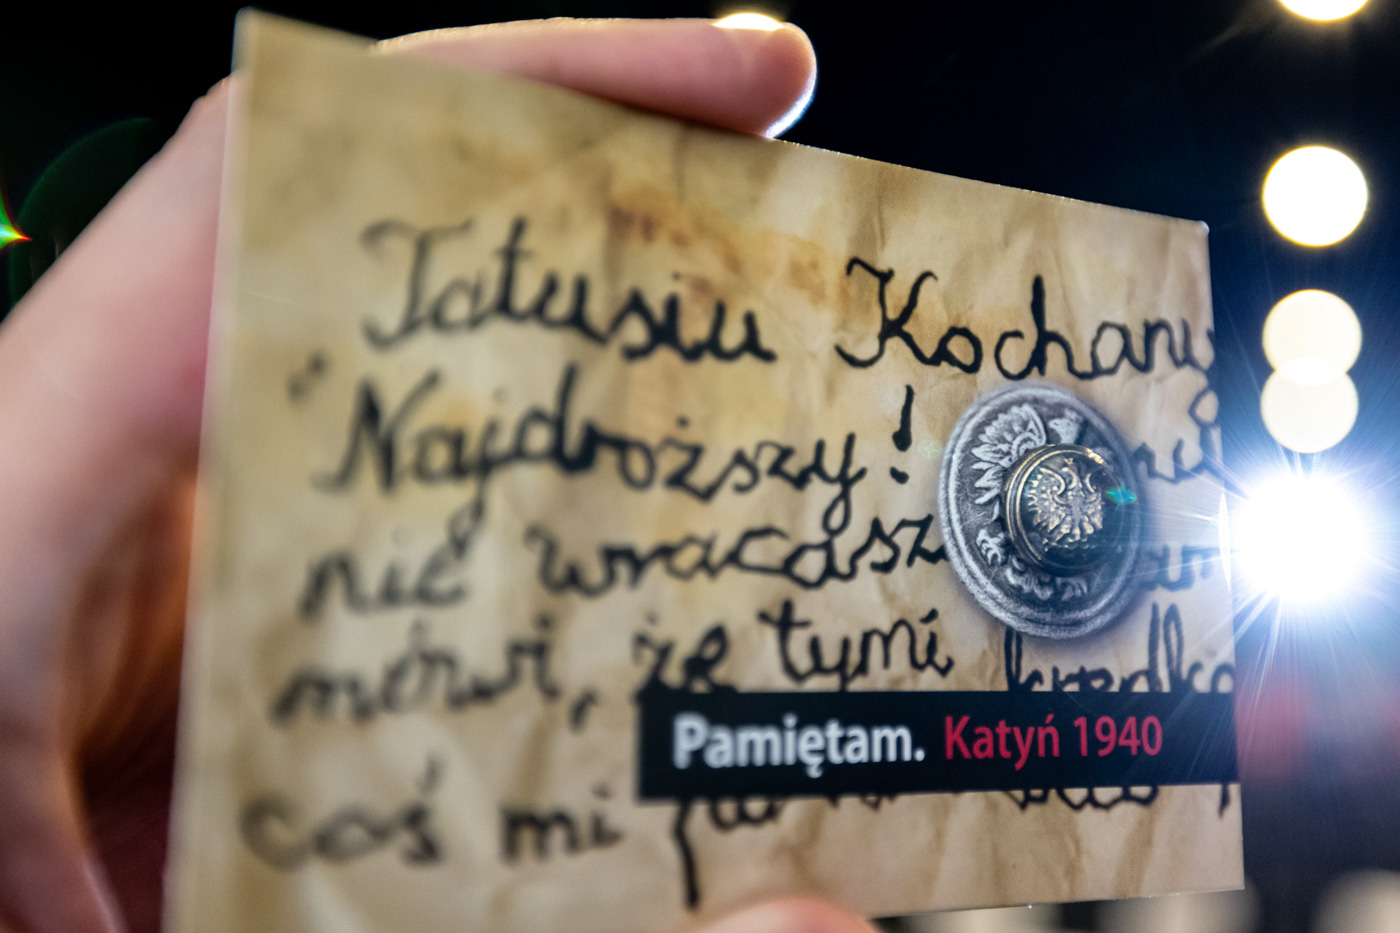 Tatusiu Kochany
Najdroższy!
nie wracasz
mówi, że tymi
Pamiętam. Katyń 1940
coś mi